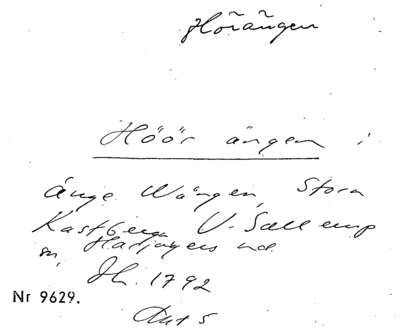 Hörängen
Höör ängen i
änge Wången, Stora
Kastberga V. Sallerup
sn, Harjagers hd
Jh. 1792
Akt 5
Nr 9629.